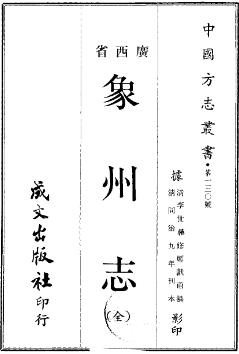 中國方志叢書・第一三〇號
據清李世椿修鄭獻甫纂
清同治九年刊本
影印
廣西省
象州志
(全)
成文出版社印行